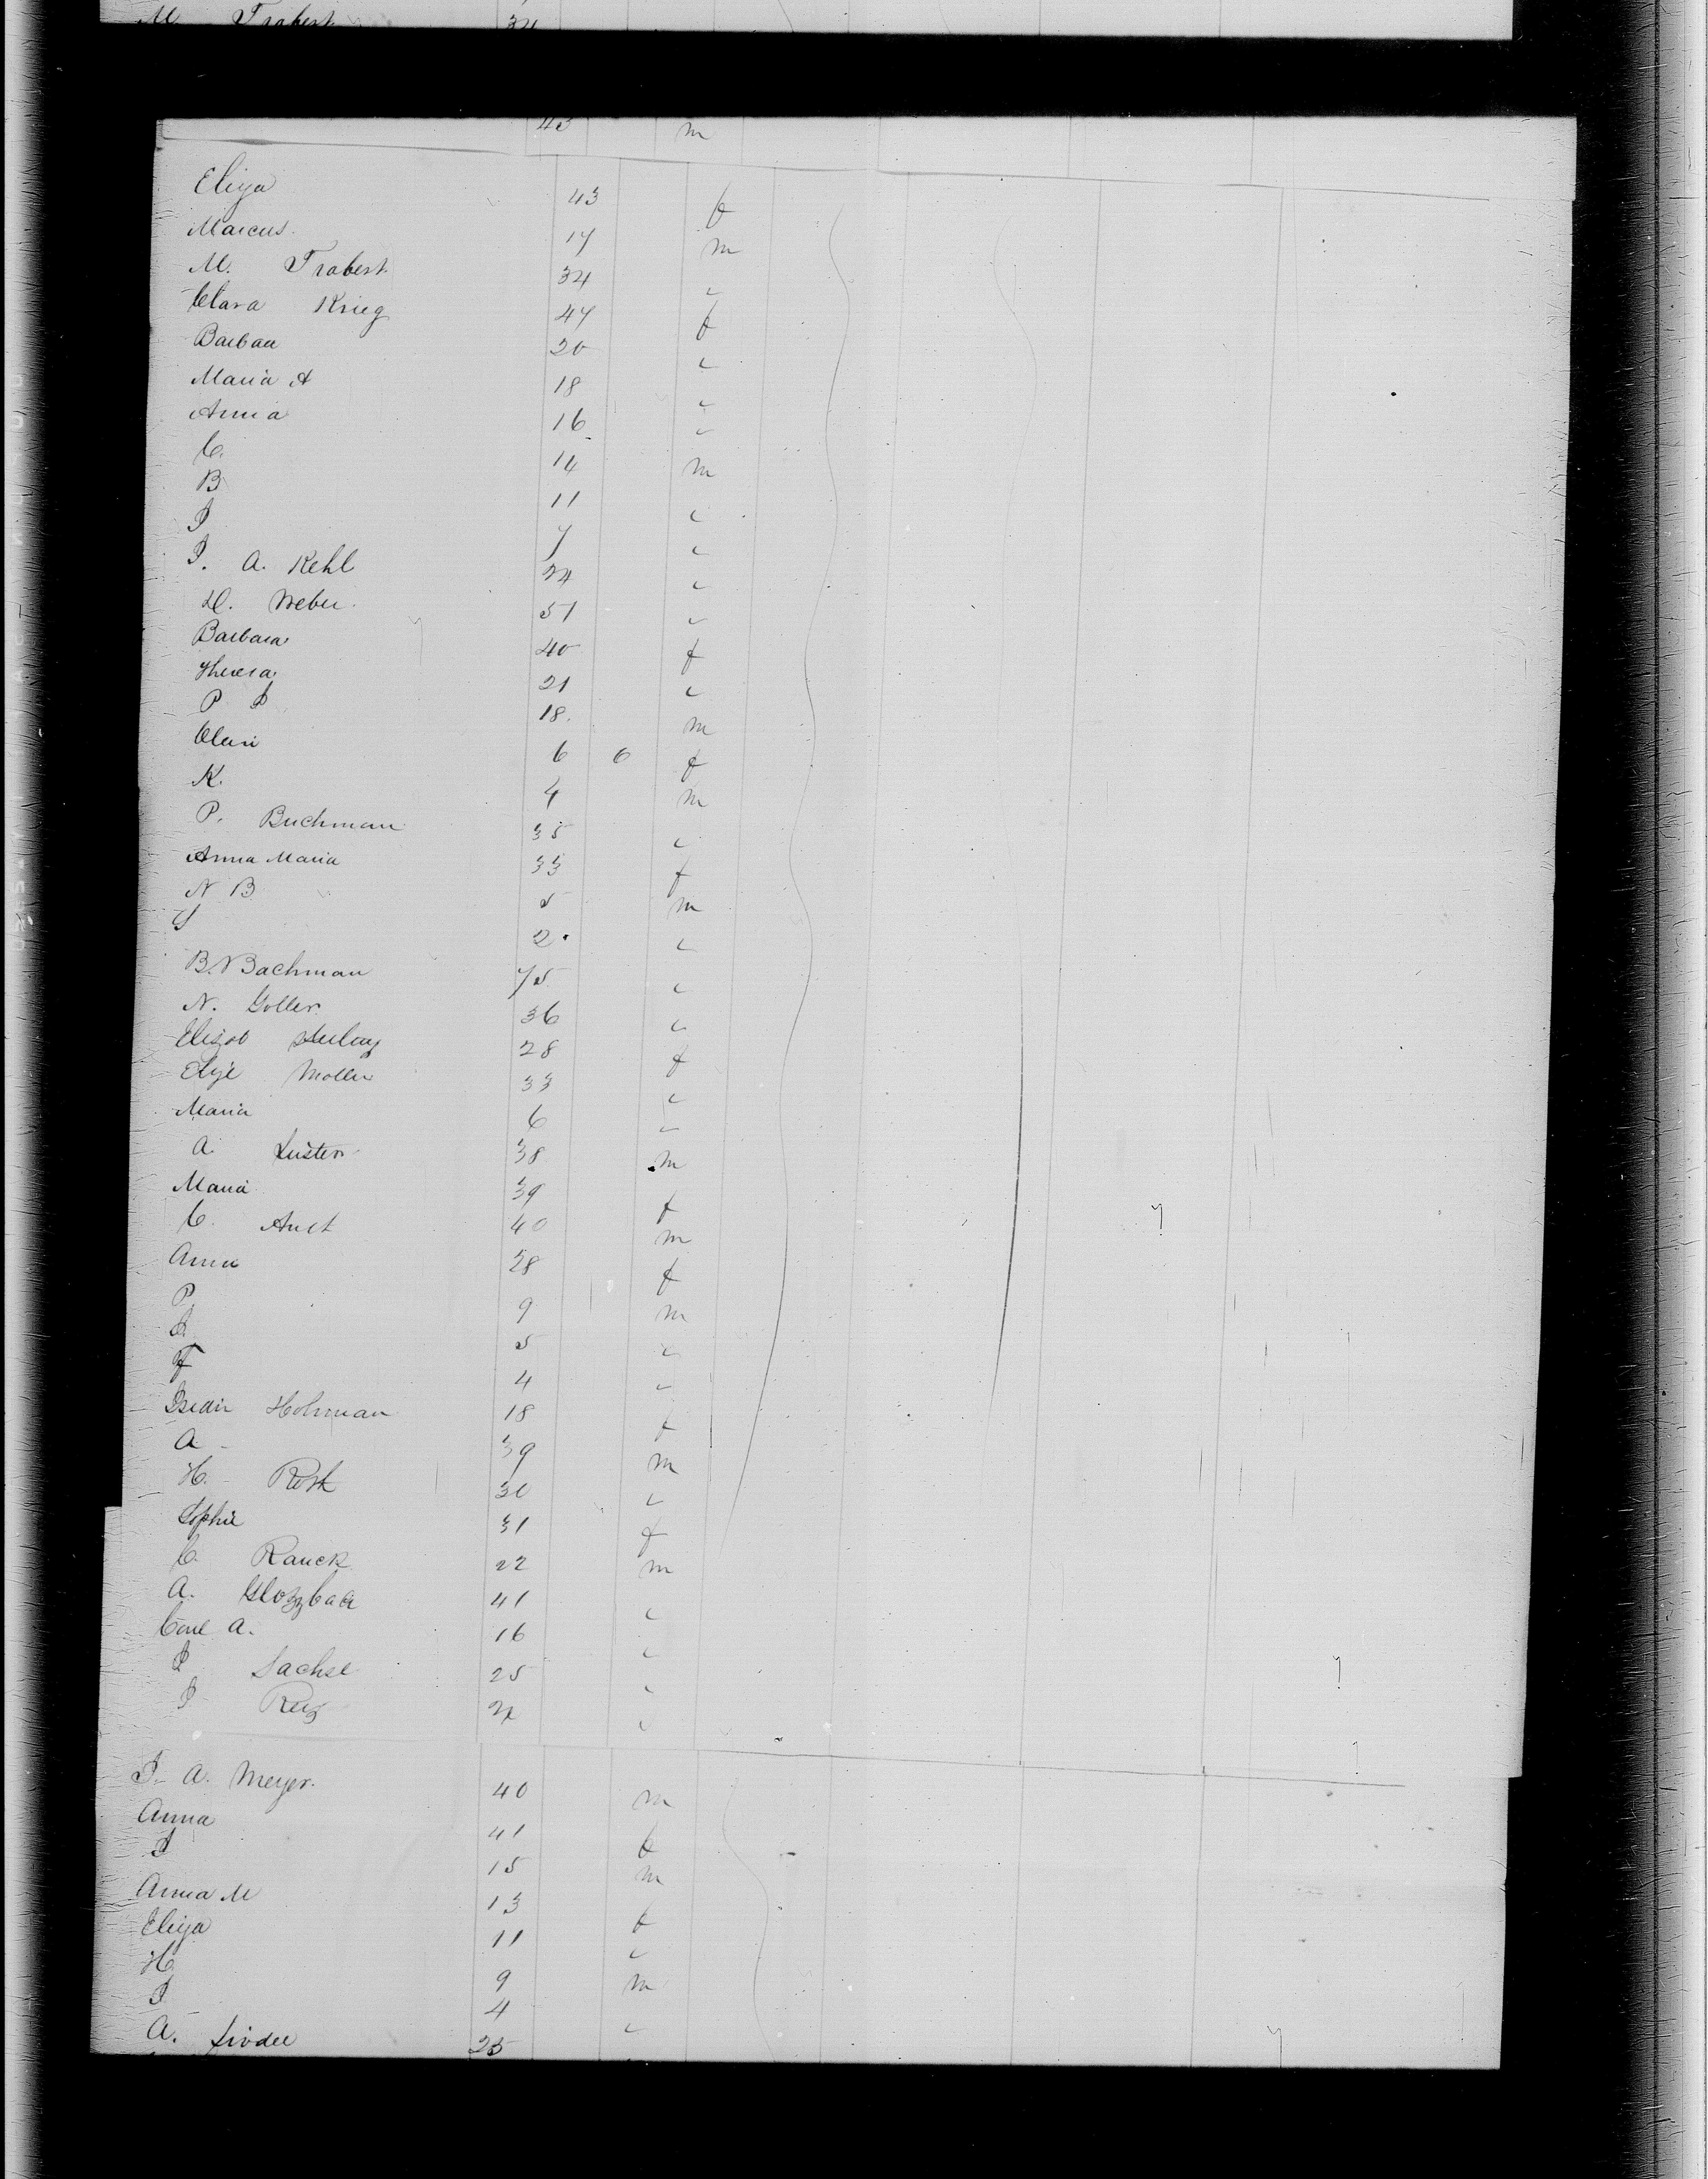 M. Trabert 34
43 m
Eliza 43 f
Marcus 17 m
M. Trabert 34 "
Clara Krieg 47 f
Barbara 20 "
Maria A 18 "
Anna 16 "
C. 14 m
B 11 "
J 7 "
J. A. Kehl 24 "
H. Weber 51 "
Barbara 40 f
Theresa 21 "
P J 18. m
6 6 f
K. 4 m
P. Buchman 35 "
Anna Maria 33 f
N B 5 m
S 2 "
B. Bachman 75 "
N. Goller 36 "
Elizab 28 f
Moller 33 "
Maria 6 "
A. 38 m
Maria 39 f
C. 40 m
Anna 28 f
P. 9 m
J. 5 "
F 4 "
Hohman 18 f
A 39 m
H. "
Sophie 31 f
C. Ranck 22 m
A. 41 "
Carl A. 16 "
J Sachse 25 "
J "
J. A. Meyer. 40 m
Anna 41 f
J 15 m
Anna M 13 f
Eliza 11 "
H 9 m
J 4 "
A. 25